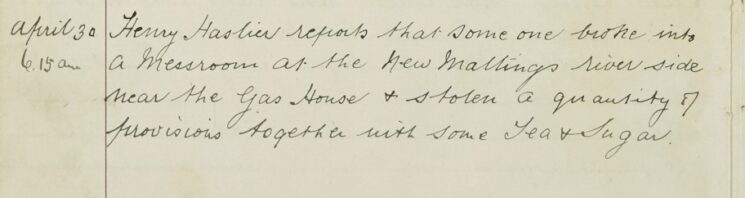 April 30 Henry Haslier reports that some one broke into
6.15 am a Messroom at the New Maltings river side
near the Gas House & stolen a quantity of
provisions together with some Tea & Sugar.